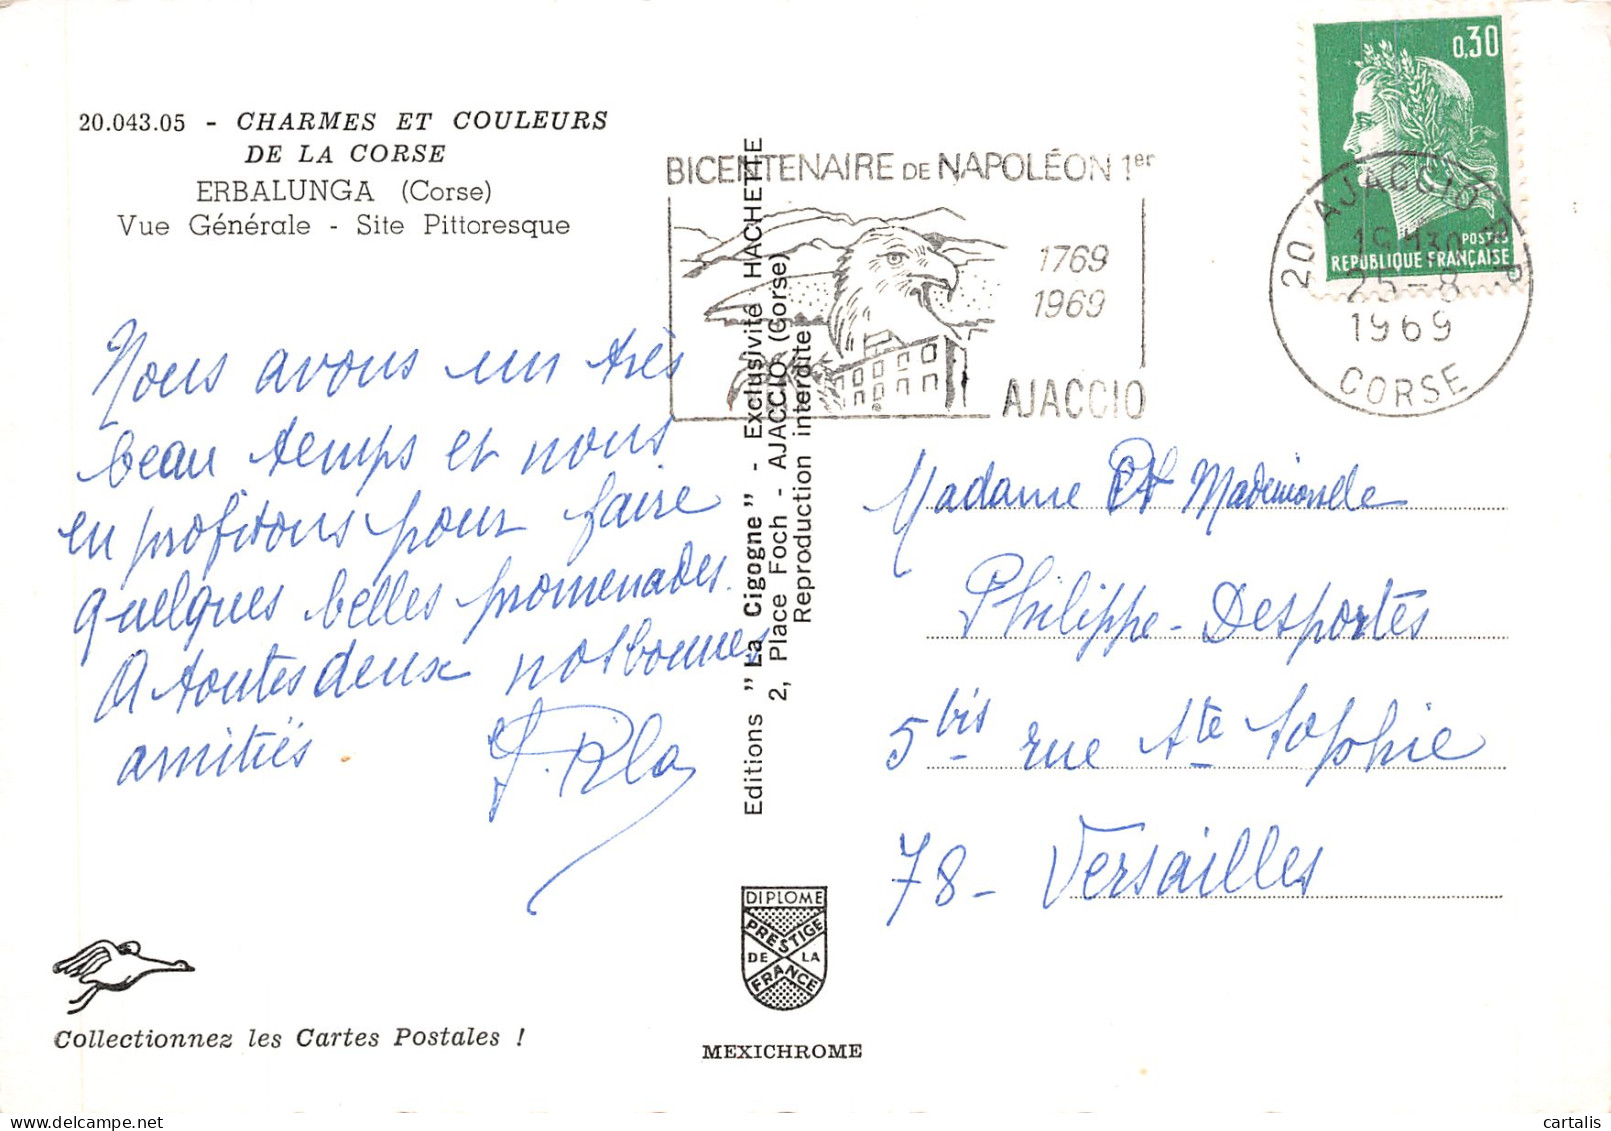 20.043.05 - CHARMES ET COULEURS
DE LA CORSE
ERBALUNGA (Corse)
Vue Générale - Site Pittoresque
Nous avons un très
beau temps et nous
en profitons pour faire
quelques belles promenades.
A toutes deux nos bonnes
amitiés.
Collectionnez les Cartes Postales !
Editions "La Cigogne" - Exclusivité HACHETTE
2, Place Foch - AJACCIO (Corse)
Reproduction interdite
DIPLOME
PRESTIGE
DE LA
FRANCE
MEXICHROME
BICENTENAIRE DE NAPOLÉON 1er
1769
1969
AJACCIO
0,30
POSTES
REPUBLIQUE FRANÇAISE
20 AJACCIO R.P.
25-8
1969
CORSE
Madame et Mademoiselle
Philippe-Desportes
5 bis rue Ste Sophie
78 - Versailles